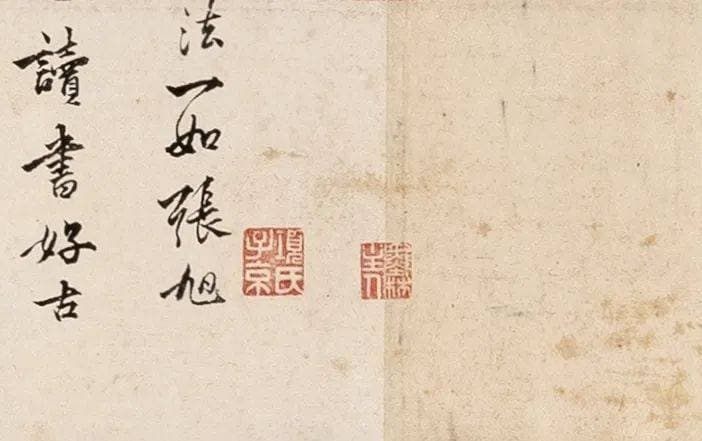 法一如張旭
讀書好古
項氏子京